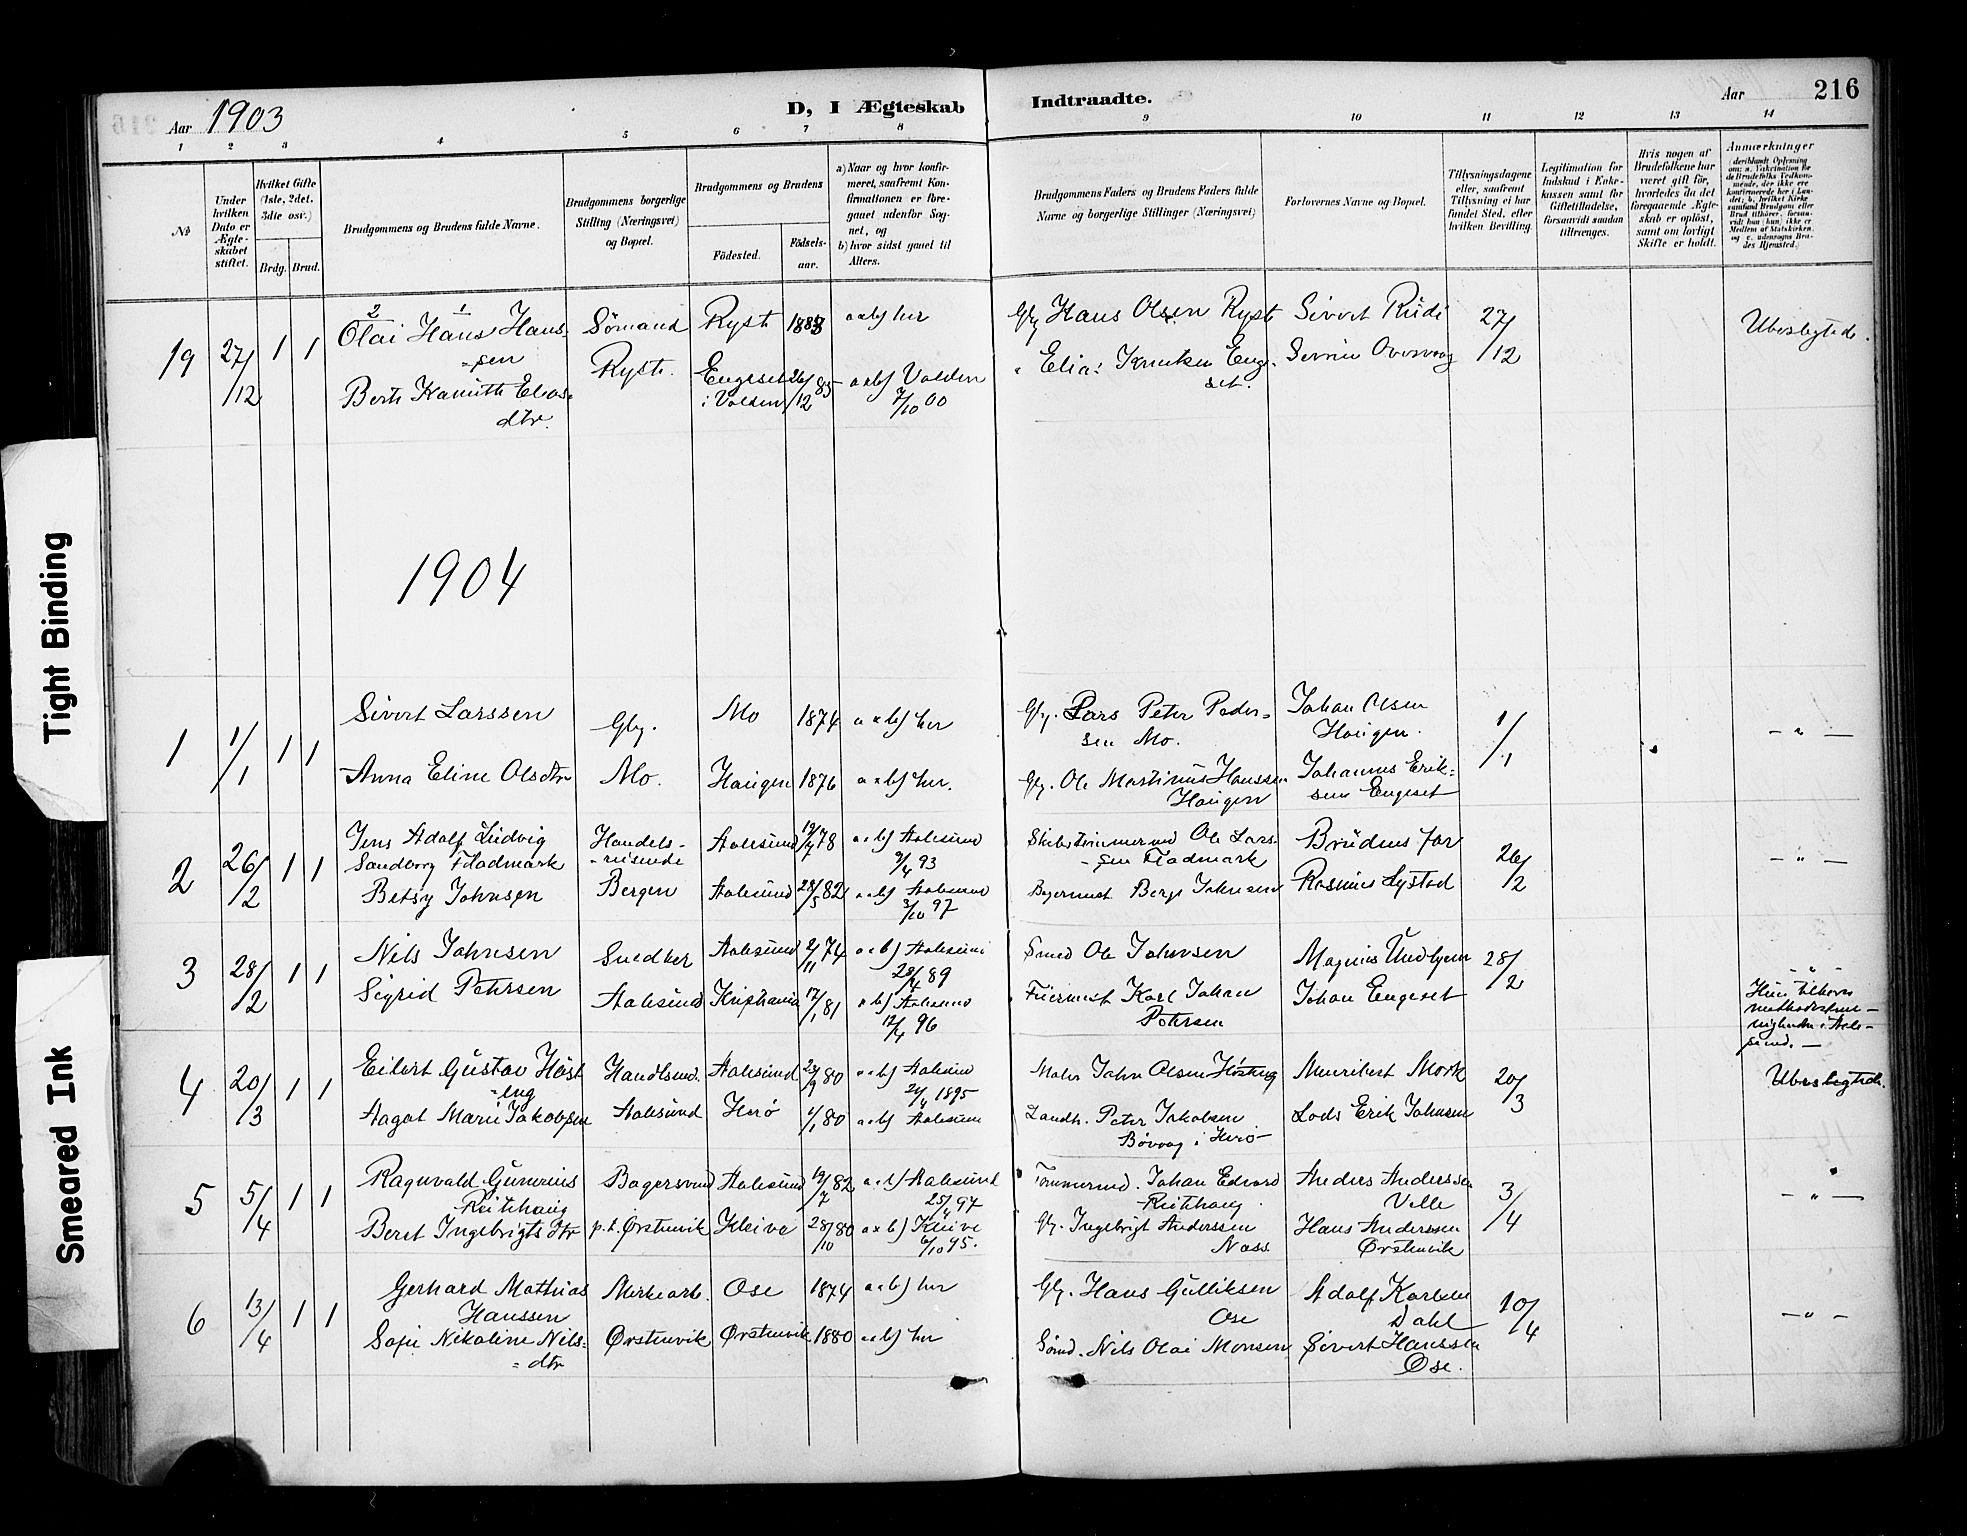 Aar 1903
D, I Ægteskab Indtraadte.
Aar 216
1 2 3 4 5 6 7 8 9 10 11 12 13 14
№
Under hvilken Dato er Ægteskabet stiftet.
Hvilket Gifte (1ste, 2det, 3die osv.)
Brdg. Brud.
Brudgommens og Brudens fulde Navne.
Brudgommens borgerlige Stilling (Næringsvei) og Bopæl.
Brudgommens og Brudens
Fødested. Fødselsaar.
a) Naar og hvor konfirmeret, saafremt Konfirmationen er foregaaet udenfor Sognet, og
b) hvor sidst gaaet til Alters.
Brudgommens Faders og Brudens Faders fulde Navne og borgerlige Stillinger (Næringsvei)
Forlovernes Navne og Bopæl.
Tillysningsdagene eller, saafremt Tillysning ei har fundet Sted, efter hvilken Bevilling.
Legitimation for Indskud i Enkekassen samt for Giftetilladelse, forsaavidt saadan tiltrænges.
Hvis nogen af Brudefolkene har været gift før, hvorledes da det foregaaende Ægteskab er opløst, samt om lovligt Skifte er holdt.
Anmærkninger
19 27/12 1 1
2 1
Olai Hans Hans-
-sen
Sømand Ryst 1883 a a b) her
Gbr Hans Olsen Ryst
27/12
Ubeslegtede.
Ryst. Engeset i Volden 26/12 85 a a b) Volden 7/10 00
" Elias Knutsen Engset.
dtr.
1904
1 1/1 1 1
Sivert Larssen Gbr. Mo 1874 a a b) her
Gbr. Lars Peter Peder-
sen Mo.
Johan Olsen
Haugen.
1/1 - " -
Anna Eline Olsdtr Mo. Haugen 1876 a a b) her.
Gbr. Ole Martinus Hanssen
Haugen
Johannes Erik-
sen Engeset
2 26/2 1 1
Jens Adolf Ludvig
Sandborg Fladmark
Handels-
-reisende
Aalesund 19/7 78 a a b) Aalesund
9/4 93
Skibstømmermd Ole Lars-
-sen Fladmark
Brudens far
26/2 - " -
Betsy Johnsen Bergen Aalesund 28/5 82 a a b) Aalesund
3/10 97
Bagermest Berge Johnsen Rasmus Lystad
3 28/2 1 1
Nils Johnsen Snedker Aalesund 2/11 74 a a b) Aalesund
28/4 89
Smed Ole Johnsen
28/2 - " -
Sigrid Petersen Aalesund Kristiania 17/1 81 a a b) Aalesund
12/4 96
Karl Johan
Petersen
Johan Engeset
4 20/3 1 1
Eilert Gustav Høst-
-eng
Handlsmd. Aalesund 80 a a b) Aalesund
21/4 1895
Maler John Olsen
Mork
20/3 Ubeslegtede.
Aagot Marie Jakobsen Aalesund Herø 1/1 80 a a b) Aalesund
Landh. Peter Jakobsen
i Herø
Lods Erik Johnsen
5 5/4 1 1
Ragnvald Gunerius
Bagersvend Aalesund 19/7 82 a a b) Aalesund
25/4 97
Tømmermd. Johan Edvard
Anders Anderssen
Velle
3/4 - " -
Beret Ingebrigtsdtr p.t. Ørstenvik Kleive 28/10 80 a a b) Kleive
6/10 95.
Gbr. Ingebrigt Anderssen
Nass
Hans Anderssen
Ørstenvik
6 13/4 1 1
Gerhard Mathias
Hanssen
Ose 1874 a a b) her
Gbr. Hans Gulliksen
Ose
Adolf Karlsen
Dahl
10/4 - " -
Sofie Nikoline Nils-
= dtr
Ørstenvik Ørstenvik 1880 a a b) her
Sømd. Nils Olai Monsen
Sivert Hanssen
Ose.
Tight Binding
Smeared Ink